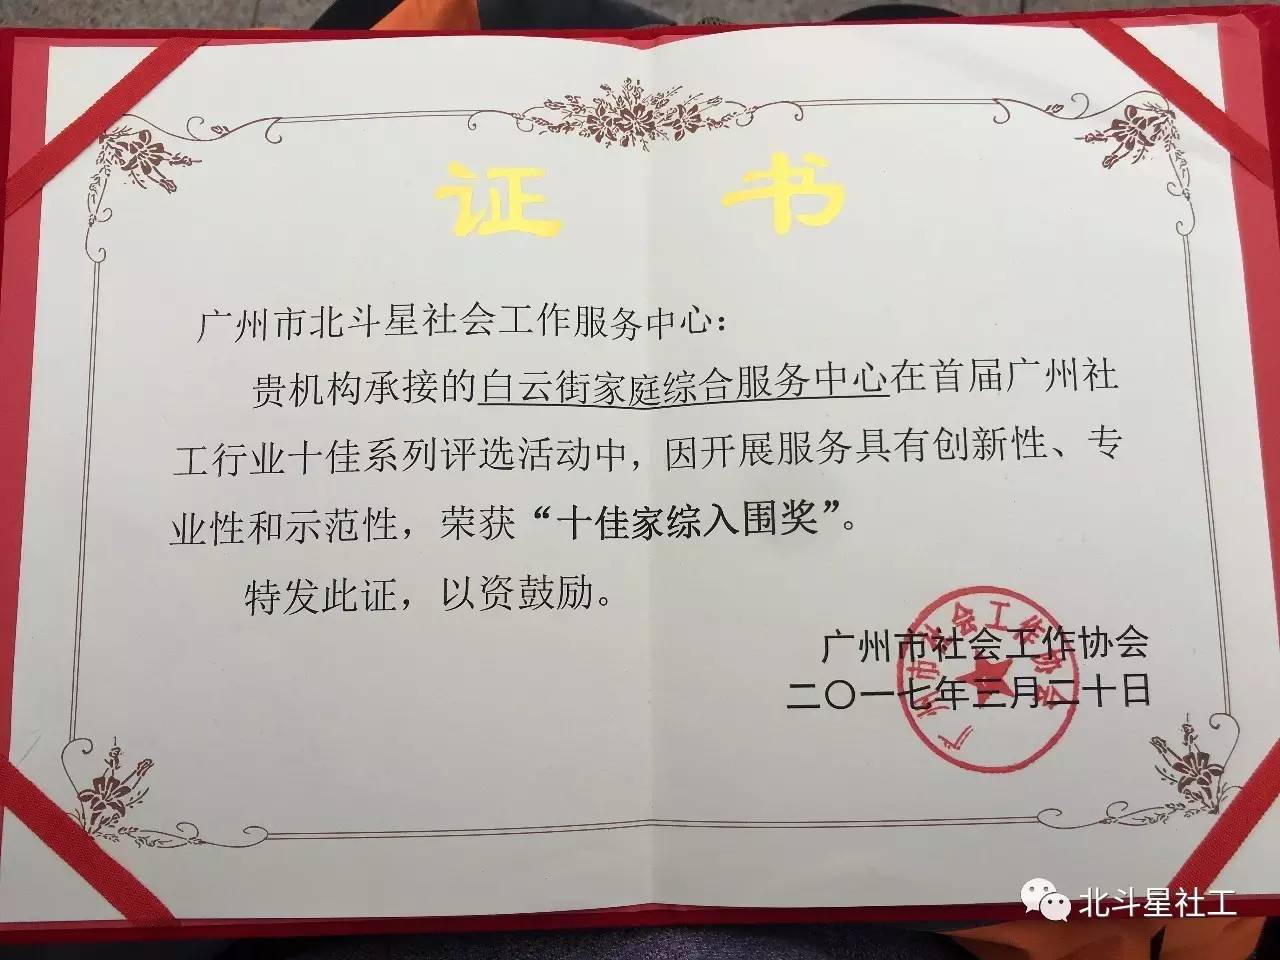 证 书
广州市北斗星社会工作服务中心：
贵机构承接的白云街家庭综合服务中心在首届广州社
工行业十佳系列评选活动中，因开展服务具有创新性、专
业性和示范性，荣获“十佳家综入围奖”。
特发此证，以资鼓励。
广州市社会工作协会
二〇一七年三月二十日
广州市社会工作协会
北斗星社工